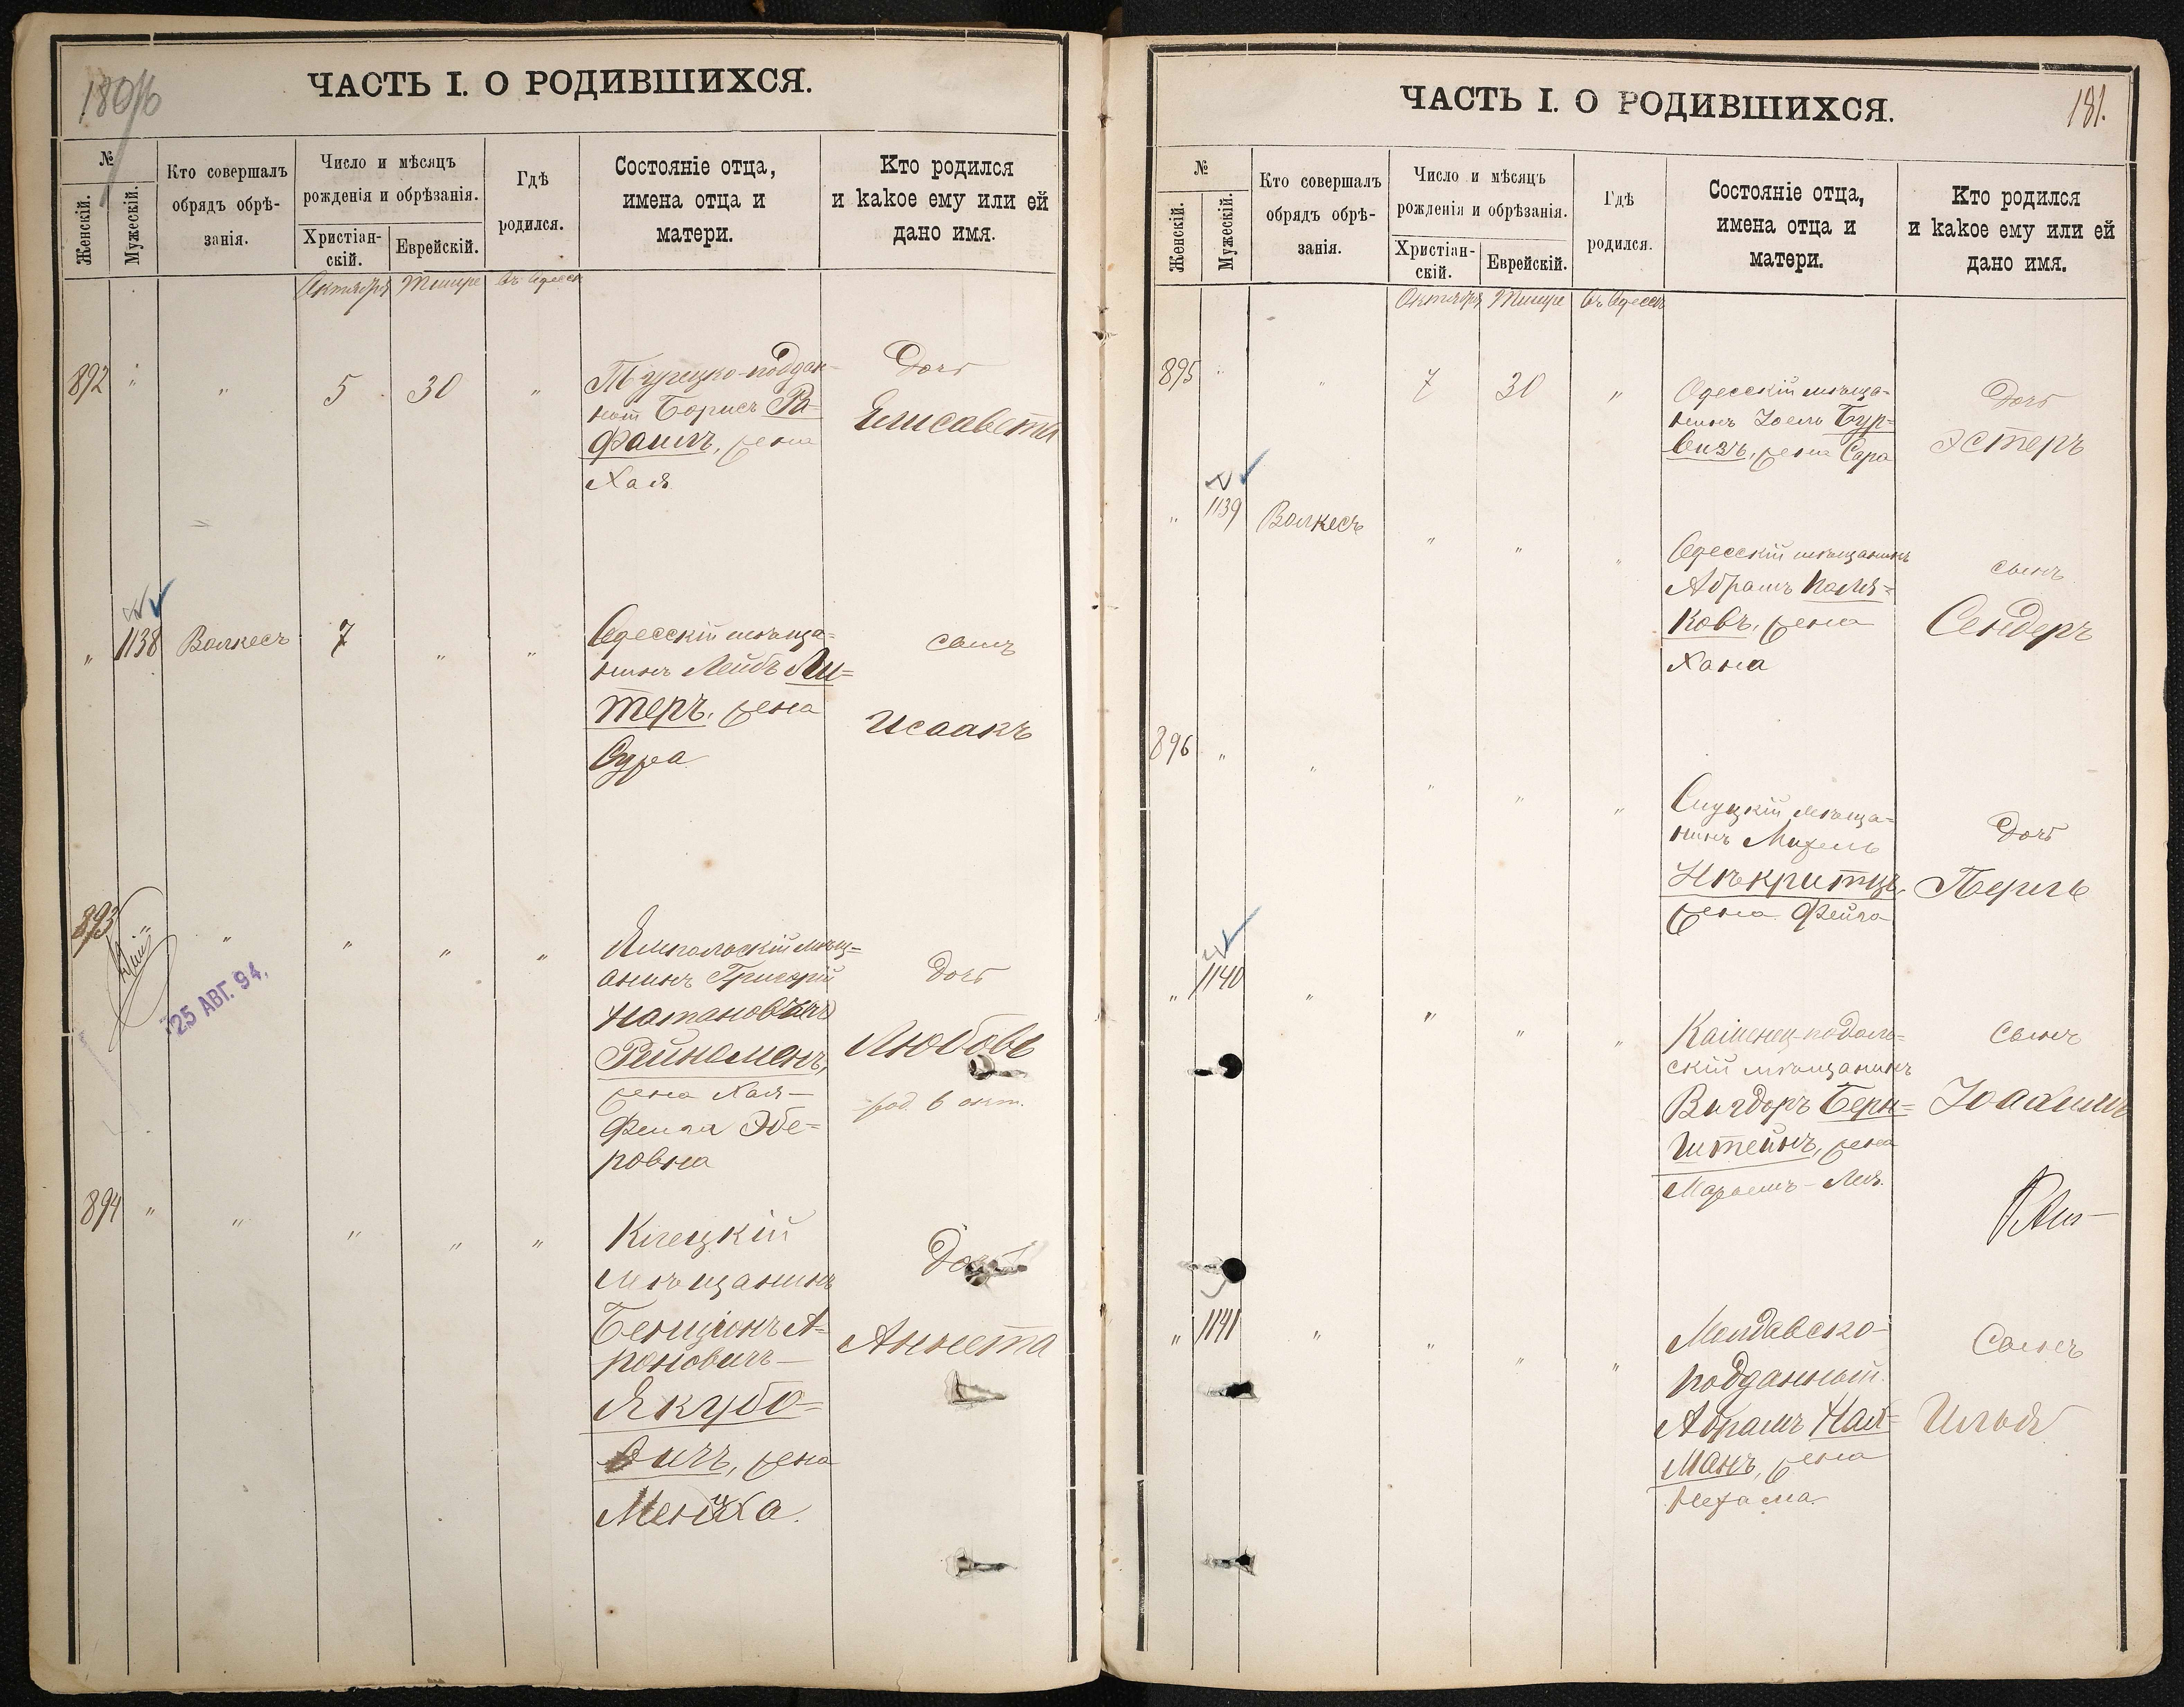 180/б
ЧАСТЬ I. О РОДИВШИХСЯ.
№
Женскій.
Мужескій.
Кто совершалъ
обрядъ обрѣ-
занія.
Число и мѣсяцъ
рожденія и обрѣзанія.
Христіан-
скій.
Еврейскій.
Гдѣ
родился.
Состояніе отца,
имена отца и
матери.
Кто родился
и какое ему или ей
дано имя.
Октября Тишре въ Одессѣ
892 " " 5 30 "
Турецко-поддан-
ный Борисъ Ра=
фаилъ, жена
Хая
Дочь
Елисавета
" 1138 Волкесъ 7 " "
Одесскій мѣща-
нинъ Лейбъ Ли=
теръ, жена
Сура
сынъ
Исаакъ
893 " " " " "
25 АВГ. 94.
Ямпольскій мѣщ=
анинъ Григорій
Натановичъ
Рейнеменъ,
жена Хая-
Фейга
ровна
Дочь
Любовь
род. 6 окт.
894 " " " " "
Клецкій
мѣщанинъ
Бенціонъ А-
роновичъ
Якубо=
вичъ, жена
Менуха.
Дочь
Аннета
ЧАСТЬ I. О РОДИВШИХСЯ.
181.
№
Женскій.
Мужескій.
Кто совершалъ
обрядъ обрѣ-
занія.
Число и мѣсяцъ
рожденія и обрѣзанія.
Христіан-
скій.
Еврейскій.
Гдѣ
родился.
Состояніе отца,
имена отца и
матери.
Кто родился
и какое ему или ей
дано имя.
Октября Тишре въ Одессѣ
895 " " 7 30 "
Одесскій мѣща-
нинъ Іоель Бур-
визъ, жена Сара
Дочь
Эстеръ
" 1139 Волкесъ " " "
Одесскій мѣщанинъ
Абрамъ Поля=
ковъ, жена
Хана
сынъ
Сендеръ
896 " " " " "
Слуцкій мѣща-
нинъ Михель
Некритцъ,
жена Фейга
Дочь
Перль
" 1140 " " " "
Каменец-подоль-
скій мѣщанинъ
Вигдоръ Берн=
штейнъ, жена
Маріемъ-Лея.
Сынъ
Іоахимъ
" 1141 " " " "
Молдавско-
подданный
Абрамъ Най-
манъ, жена
Нехама.
Сынъ
Илья